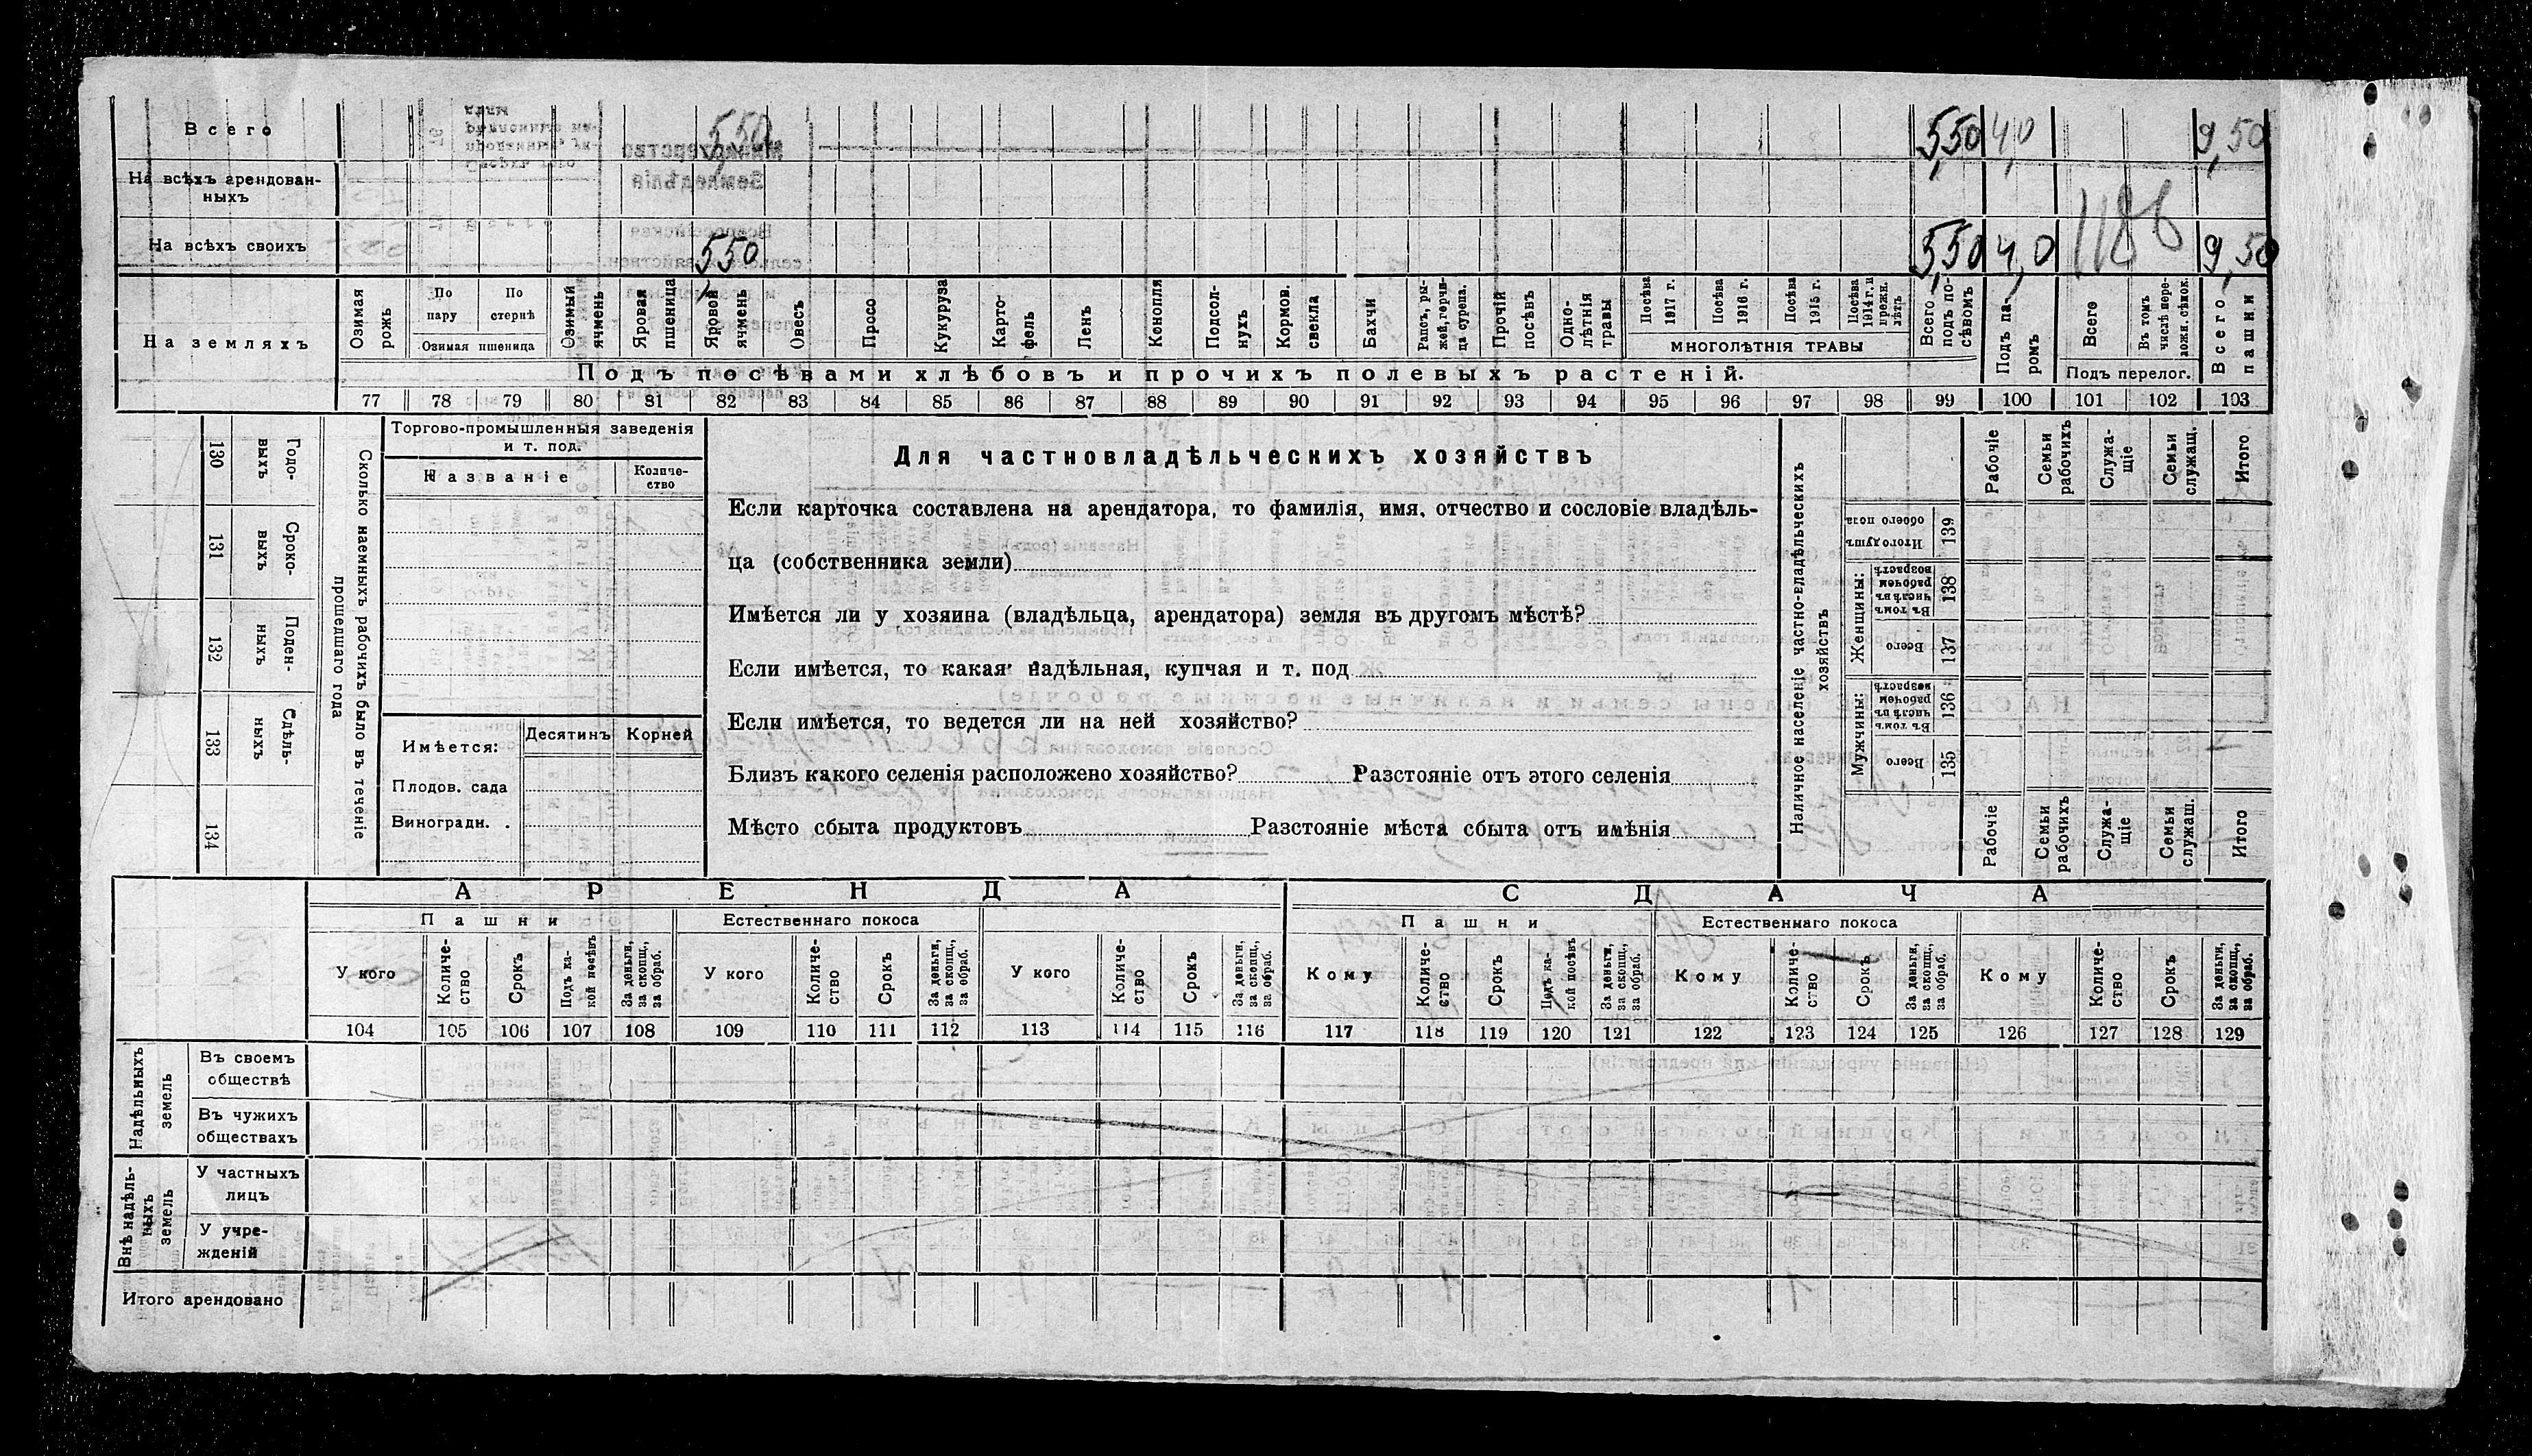 Всего 5,50 5,50 4,0 9,50
На всѣхъ арендован-
ныхъ
На всѣхъ своихъ 5,50 5,50 4,0 1186 9,50
На земляхъ
Озимая рожь
По пару
По стернѣ
Озимая пшеница
Озимый ячмень
Яровая пшеница
Яровой ячмень
Овесъ
Просо
Кукуруза
Карто-
фель
Ленъ
Конопля
Подсол-
нухъ
Кормов.
свекла
Бахчи
Рапсъ, ры-
жей, горчи-
ца сурепа.
Прочій
посѣвъ
Одно-
лѣтнія
травы
Посѣва
1917 г.
Посѣва
1916 г.
Посѣва
1915 г.
Посѣва
1914 г. и
прежн.
лѣтъ
МНОГОЛѢТНІЯ ТРАВЫ
Всего
подъ по-
сѣвомъ
Подъ па-
ромъ
Всего
Въ томъ
числѣ пере-
ложн. сѣнок.
Подъ перелог.
Всего
пашни
Подъ посѣвами хлѣбовъ и прочихъ полевыхъ растеній.
77 78 79 80 81 82 83 84 85 86 87 88 89 90 91 92 93 94 95 96 97 98 99 100 101 102 103
130 Годо-
выхъ
131 Сроко-
выхъ
132 Поден-
ныхъ
133 Сдѣль-
ныхъ
134
Сколько наемныхъ рабочихъ было въ теченіе
прошедшаго года
Торгово-промышленныя заведенія
и т. под.
Названіе
Количе-
ство
Имѣется: Десятинъ Корней
Плодов. сада
Виноградн. .
Для частновладѣльческихъ хозяйствъ
Если карточка составлена на арендатора, то фамилія, имя, отчество и сословіе владѣль-
ца (собственника земли)
Имѣется ли у хозяина (владѣльца, арендатора) земля въ другомъ мѣстѣ?
Если имѣется, то какая надѣльная, купчая и т. под
Если имѣется, то ведется ли на ней хозяйство?
Близъ какого селенія расположено хозяйство? Разстояніе отъ этого селенія
Мѣсто сбыта продуктовъ Разстояніе мѣста сбыта отъ имѣнія
Наличное населеніе частно-владѣльческихъ
хозяйствъ
Рабочіе
Семьи
рабочихъ
Служа-
щіе
Семьи
служащ.
Итого
Итого душъ
обоего пола
139
Женщины:
Въ томъ
числѣ въ
рабочем
возрастѣ
138
Всего
137
Мужчины:
Въ томъ
числѣ въ
рабочем
возрастѣ
136
Всего
135
Рабочіе
Семьи
рабочихъ
Служа-
щіе
Семьи
служащ.
Итого
АРЕНДА СДАЧА
Пашни Естественнаго покоса Пашни Естественнаго покоса
У кого
Количе-
ство
Срокъ
Подъ ка-
кой посѣвъ
За деньги,
за скопщ.,
за обраб.
У кого
Количе-
ство
Срокъ
За деньги,
за скопщ.,
за обраб.
У кого
Количе-
ство
Срокъ
За деньги,
за скопщ.,
за обраб.
Кому
Количе-
ство
Срокъ
Подъ ка-
кой посѣвъ
За деньги,
за скопщ.,
за обраб.
Кому
Количе-
ство
Срокъ
За деньги,
за скопщ.,
за обраб.
Кому
Количе-
ство
Срокъ
За деньги,
за скопщ.,
за обраб.
104 105 106 107 108 109 110 111 112 113 114 115 116 117 118 119 120 121 122 123 124 125 126 127 128 129
Надѣльныхъ
земель
Въ своемъ
обществѣ
Въ чужихъ
обществахъ
Внѣ надѣль-
ныхъ
земель
У частныхъ
лицъ
У учре-
жденій
Итого арендовано